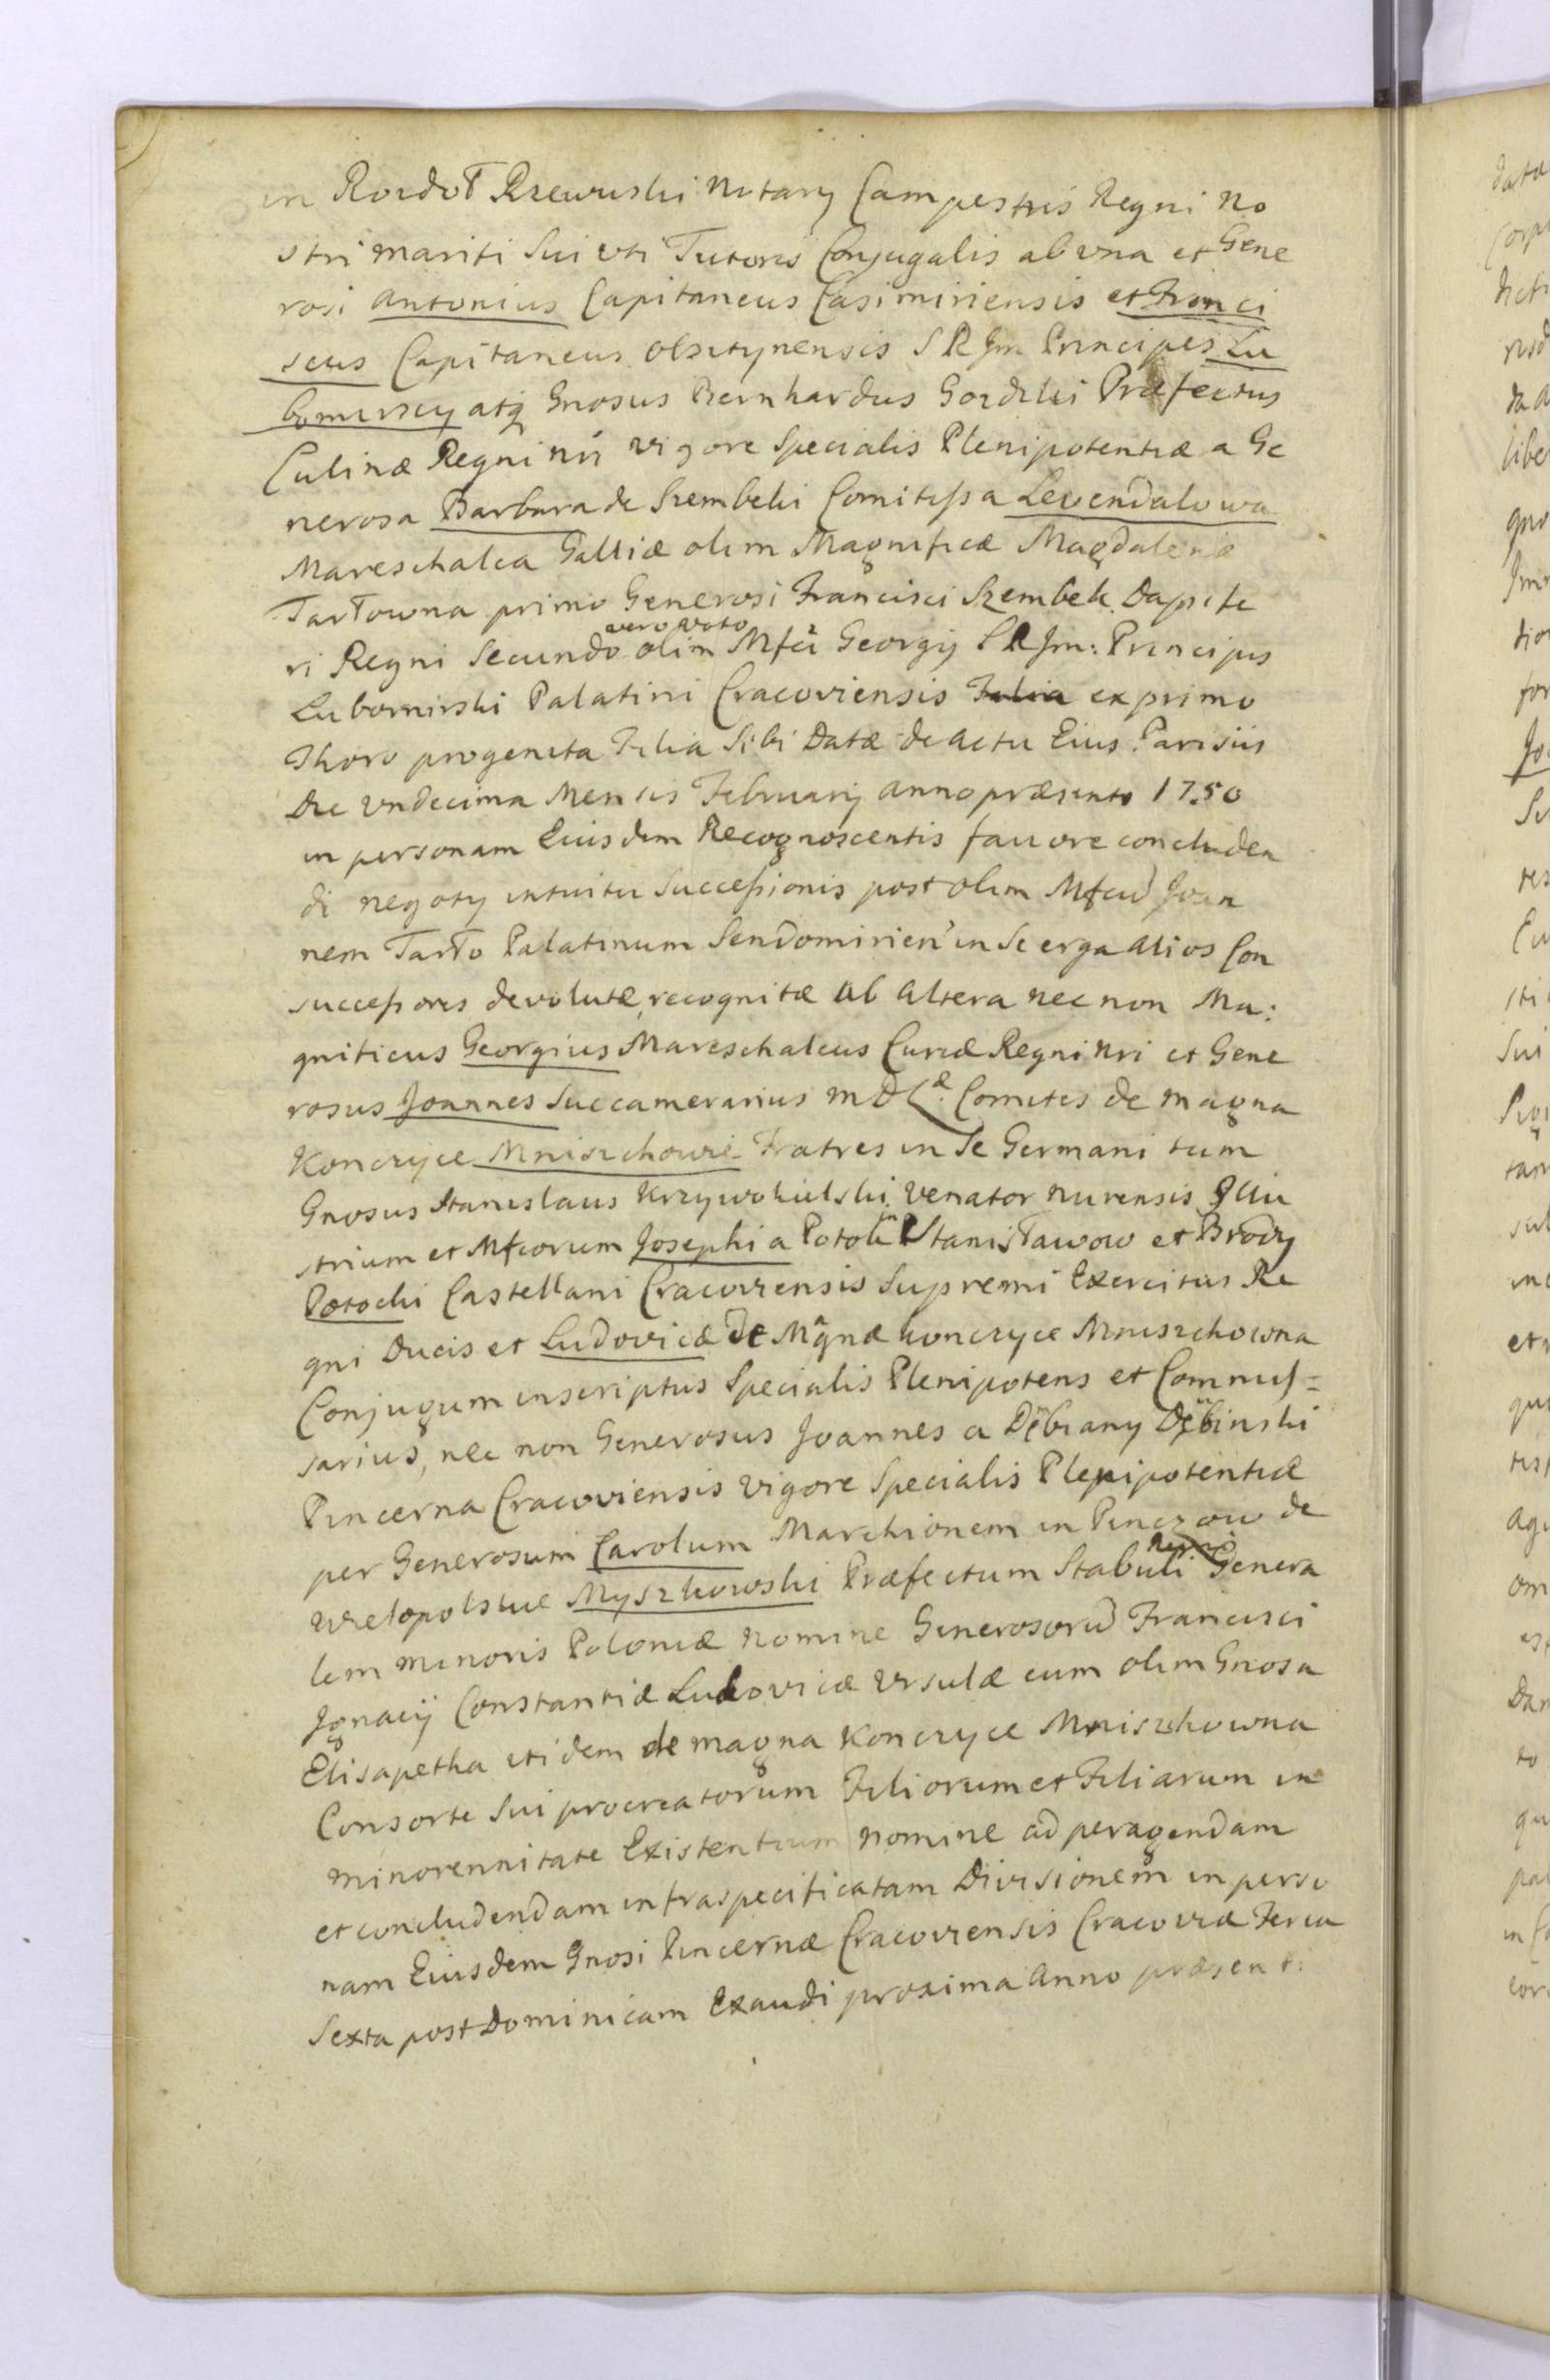 in Rozdoł Rzewuski Notarÿ Campestris Regni No
stri mariti Sui uti Tutoris Conjugalis ab una et Gene
rosi Antonius Capitaneus Casimiriensis et Franci
scus Capitaneus Olsztynensis S R Jm Principes Lu
bomirscy atq Gnosus Bernhardus Gozdzki Præfectus
Culinæ Regni nri vigore Specialis Plenipotentiæ a Ge
nerosa Barbara de Szembeki Comitissa Levendalowa
Mareschalca Galliæ olim Magnificæ Magdalenæ
Tarłowna primo Generosi Francisci Szembek Dapife
ri Regni Secundo vero voto olim Mfci Georgÿ S R Jm: Principis
Lubomirski Palatini Cracoviensis Filia ex primo
Thoro progenita Filia Sibi Datæ de actu Eius Parisiis
Die undecima Mensis Februarÿ anno præsenti 1750
in personam Eiusdem Recognoscentis favore concluden
di negotÿ intuitu Successionis post olim Mfcum Joan
nem Tarło Palatinum Sendomirien in Se erga alios Con
successores devolutæ, recognitæ ab altera nec non Ma:
gnificus Georgius Mareschalcus Curiæ Regni Nri et Gene
rosus Joannes Succamerarius M D Læ. Comites de Magna
Konczyce Mniszchowie Fratres in Se Germani tum
Gnosus Stanislaus Krzywokulski Venator Nurensis Jllu
strium et Mfcorum Josephi a Potok in Stanisławow et Brody
Potocki Castellani Cracoviensis Supremi Exercitus Re
gni Ducis et Ludovicæ de Magnæ Konczyce Mniszchowna
Conjugum inscriptus Specialis Plenipotens et Commis=
sarius, nec non Generosus Joannes a Dębiany Dębinski
Pincerna Cracoviensis vigore Specialis Plenipotentiæ
per Generosum Carolum Marchionem in Pinczow de
Wielopolskie Myszkowski Præfectum Stabuli Regni Genera
lem minoris Poloniæ nomine Generosorum Francisci
Jgnacÿ Constantiæ Ludovicæ Ursulæ cum olim Gnosa
Elisapetha itidem de magna Konczyce Mniszchowna
Consorte Sui procreatorum Filiorum et Filiarum in
minorennitate Existentium nomine ad peragendam
et concludendam infraspecificatam Divisionem in perso
nam Eiusdem Gnosi Pincernæ Cracoviensis Cracoviæ Feria
Sexta post Dominicam Exaudi proxima Anno præsenti